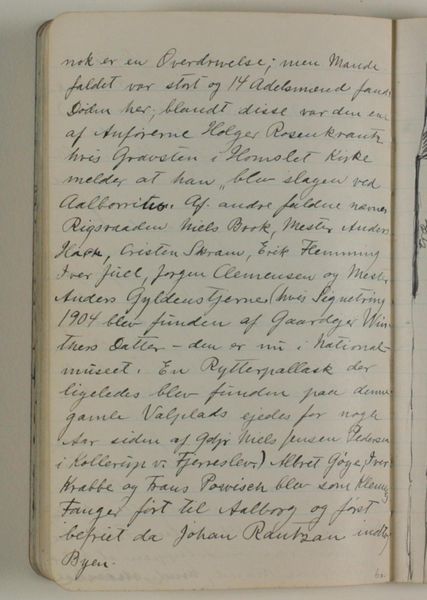 nok er en Overdrivelse; men Mande
faldet var stort og 14 Adelsmænd fandt
Døden her; blandt disse var den ene
af Anførerne Holger Rosenkrantz
hvis Gravsten i Hornslet Kirke
melder at han "blev slagen ved
Aalborrii. Af andre faldne nævnes
Rigsraaden Niels Brok, Mester Anders
Cristen Skram, Erik Flemming
Iver Juel, Jørgen Clemensen og Mester
Anders Gyldenstjerne (hvis Signetring
1904 blev funden af Gaardejer Win-
thers Datter - den er nu i National-
museet. En Rytterpallask der
ligeledes blev funden paa denne
gamle Valplads ejedes for nogle
Aar siden af Gdjr Niels Jensen Pedersen
i Kollerup v. Fjerreslev.) Albret Gøye, Iver
Krabbe og Frans Powisch blev som Klemens
Fanger ført til Aalborg og først
befriet da Johan Rantzau indtog
Byen.